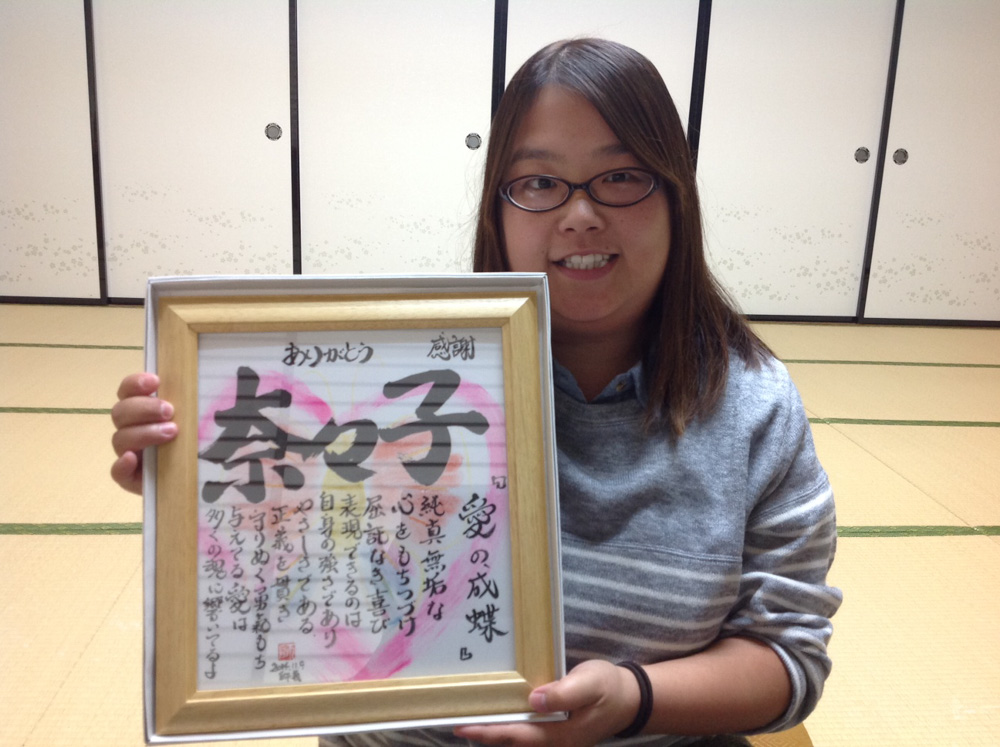 ありがとう
感謝
奈々子
『愛の成蝶』
純真無垢な
心をもちつづけ
屈託なき喜び
表現できるのは
自身の強さであり
やさしさである
正義を貫き
守りぬく勇気もち
与えてる愛は
多くの魂に響いてるよ